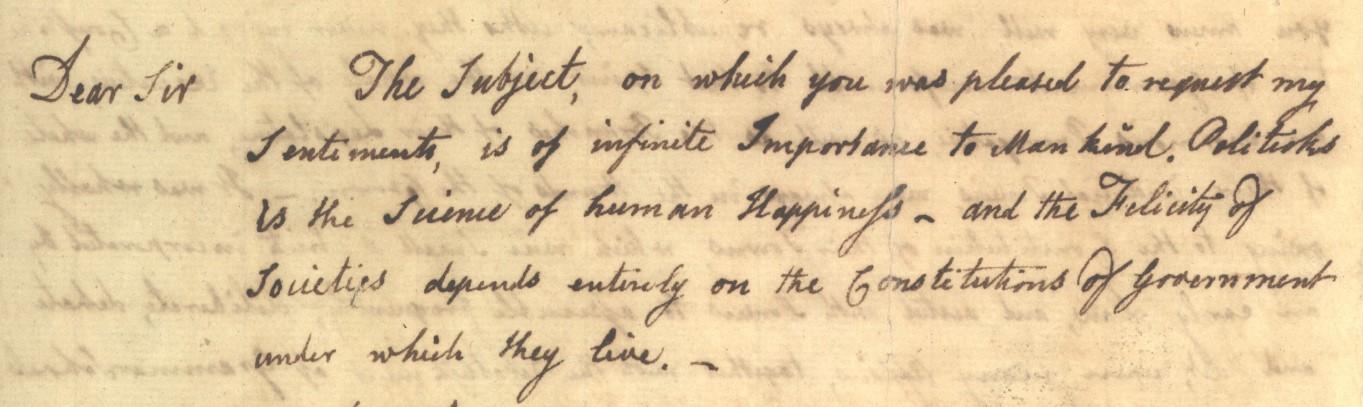 Dear Sir The Subject, on which you was pleased to request my
Sentiments, is of infinite Importance to Mankind. Politicks
is the Science of human Happiness - and the Felicity of
Societies depends entirely on the Constitutions of Government
under which they live. -